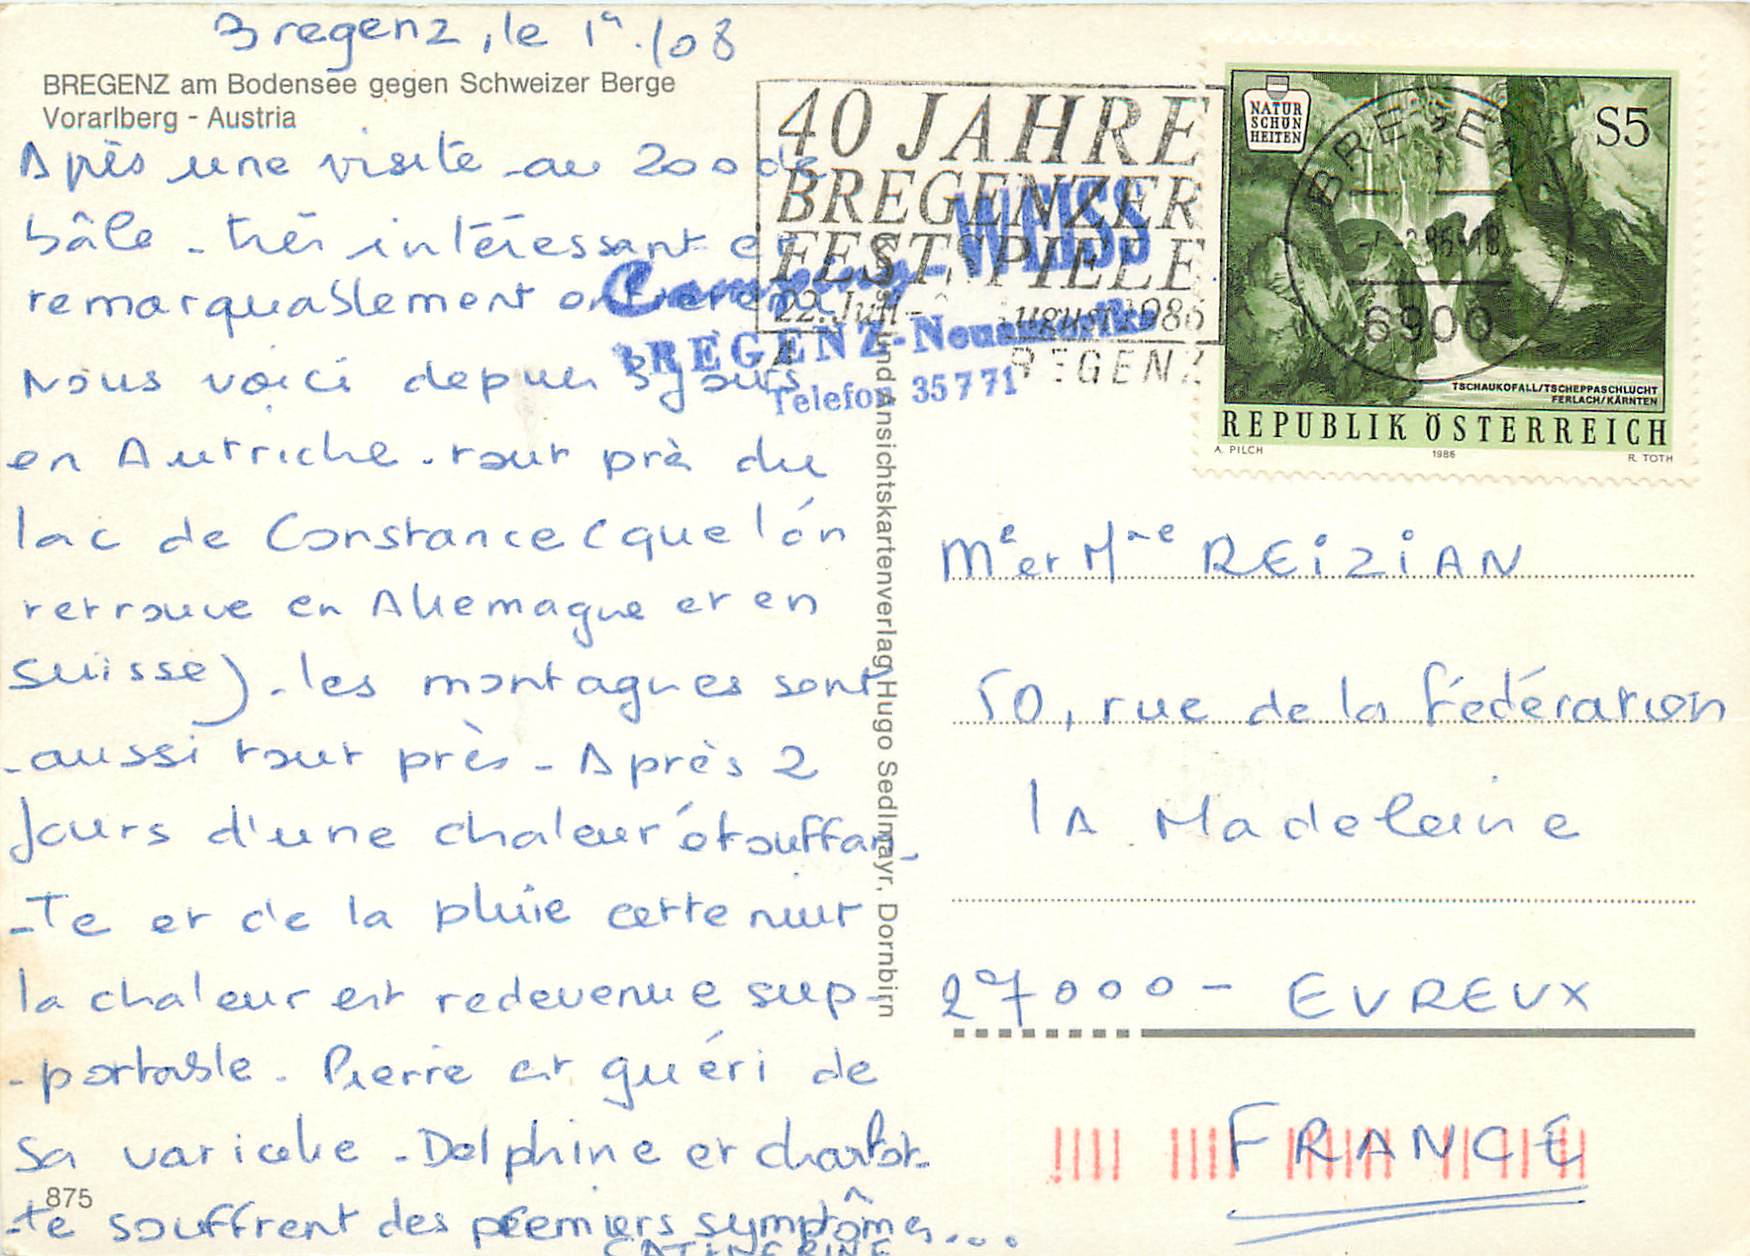 Bregenz, le 1er/08
BREGENZ am Bodensee gegen Schweizer Berge
Vorarlberg - Austria
Après une visite au zoo de
bâle - très intéressant et
remarquablement
Nous voici depuis 3 jours
en Autriche - tout près du
lac de Constance (que l'on
retrouve en Allemagne et en
suisse) - les montagnes sont
aussi tout près - Après 2
jours d'une chaleur étouffan-
-te et de la pluie cette nuit
la chaleur est redevenue sup-
-portable - Pierre est guéri de
sa varicelle - Delphine et charlot-
-te souffrent des premiers symptômes...
CATHERINE
875
40 JAHRE
BREGENZER
FESTSPIELE
22. Juli - August 1986
BREGENZ
Camping-WEISS
BREGENZ-Neu
Telefon 35771
und Ansichtskartenverlag Hugo Sedlmayr, Dornbirn
NATUR
SCHÖN
HEITEN
S5
BREGENZ
6900
TSCHAUKOFALL/TSCHEPPASCHLUCHT
FERLACH/KÄRNTEN
REPUBLIK ÖSTERREICH
A. PILCH 1986 R. TOTH
Mr et Mme REIZIAN
50, rue de la fédération
la Madeleine
27000 - EVREUX
FRANCE